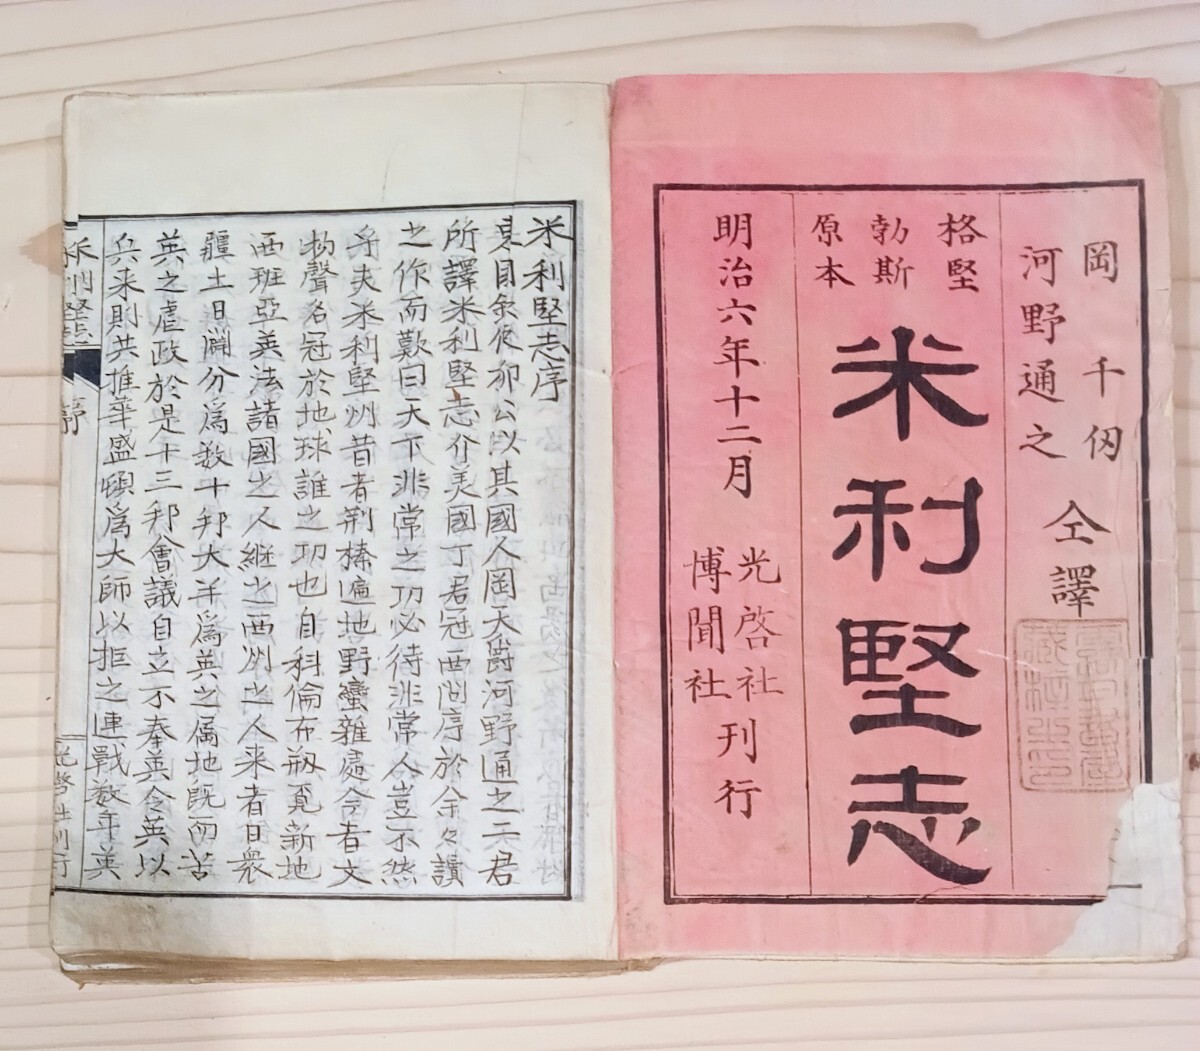 岡千仞
河野通之
仝譯
格堅
勃斯
原本
米利堅志
明治六年十二月
光啓社
博聞社
刊行
米利堅志序
具目余從卯公以其國人岡天爵河野通之二君
所譯米利堅志介美國丁君冠西問序於余々讀
之作而歎曰天下非常之功必待非常人豈不然
乎夫米利堅州昔者荊榛遍地野蠻雜處今者文
物聲名冠於地球誰之功也自科倫布剏覓新地
西班亞英法諸國之人継之西州之人来者日衆
疆土日淵分爲数十邦大半爲英之属地既而苦
英之虐政於是十三邦會議自立不奉英令英以
兵来則共推華盛頓爲大師以拒之連戰数年英
米利堅志
序
光啓社刊行